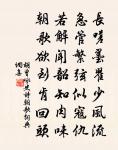 長嗟墨翟少風流
急管繁弦似寇仇
若解聞韶知肉味
朝歌欲到肯回頭
胡曾詠史詩朝歌